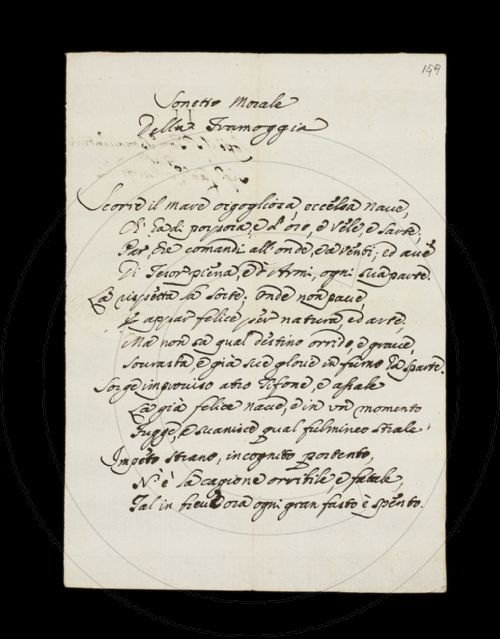 149
Sonetto Morale
Della Tramoggia
Scorre il mare orgogliosa, eccelsa nave,
Ch' ha di porpora, e d' oro, e vele, e sarte,
Par, che comandi all' onde, e a' venti; ed ave
Di Tesor piena, e d' Armi, ogni sua parte.
La rispetta la sorte; onde non pave,
E appar felice per natura, ed arte;
Ma non sa qual destino orrido, e grave,
Sovrasta, e già
Sorge improviso atro Tifone, e assale
La già felice nave, e in un momento
Fugge, e svanisce qual fulmineo strale.
Impeto strano, incognito portento,
N' è la cagione orribile, e fatale,
Tal in breve ora ogni gran fasto è spento.